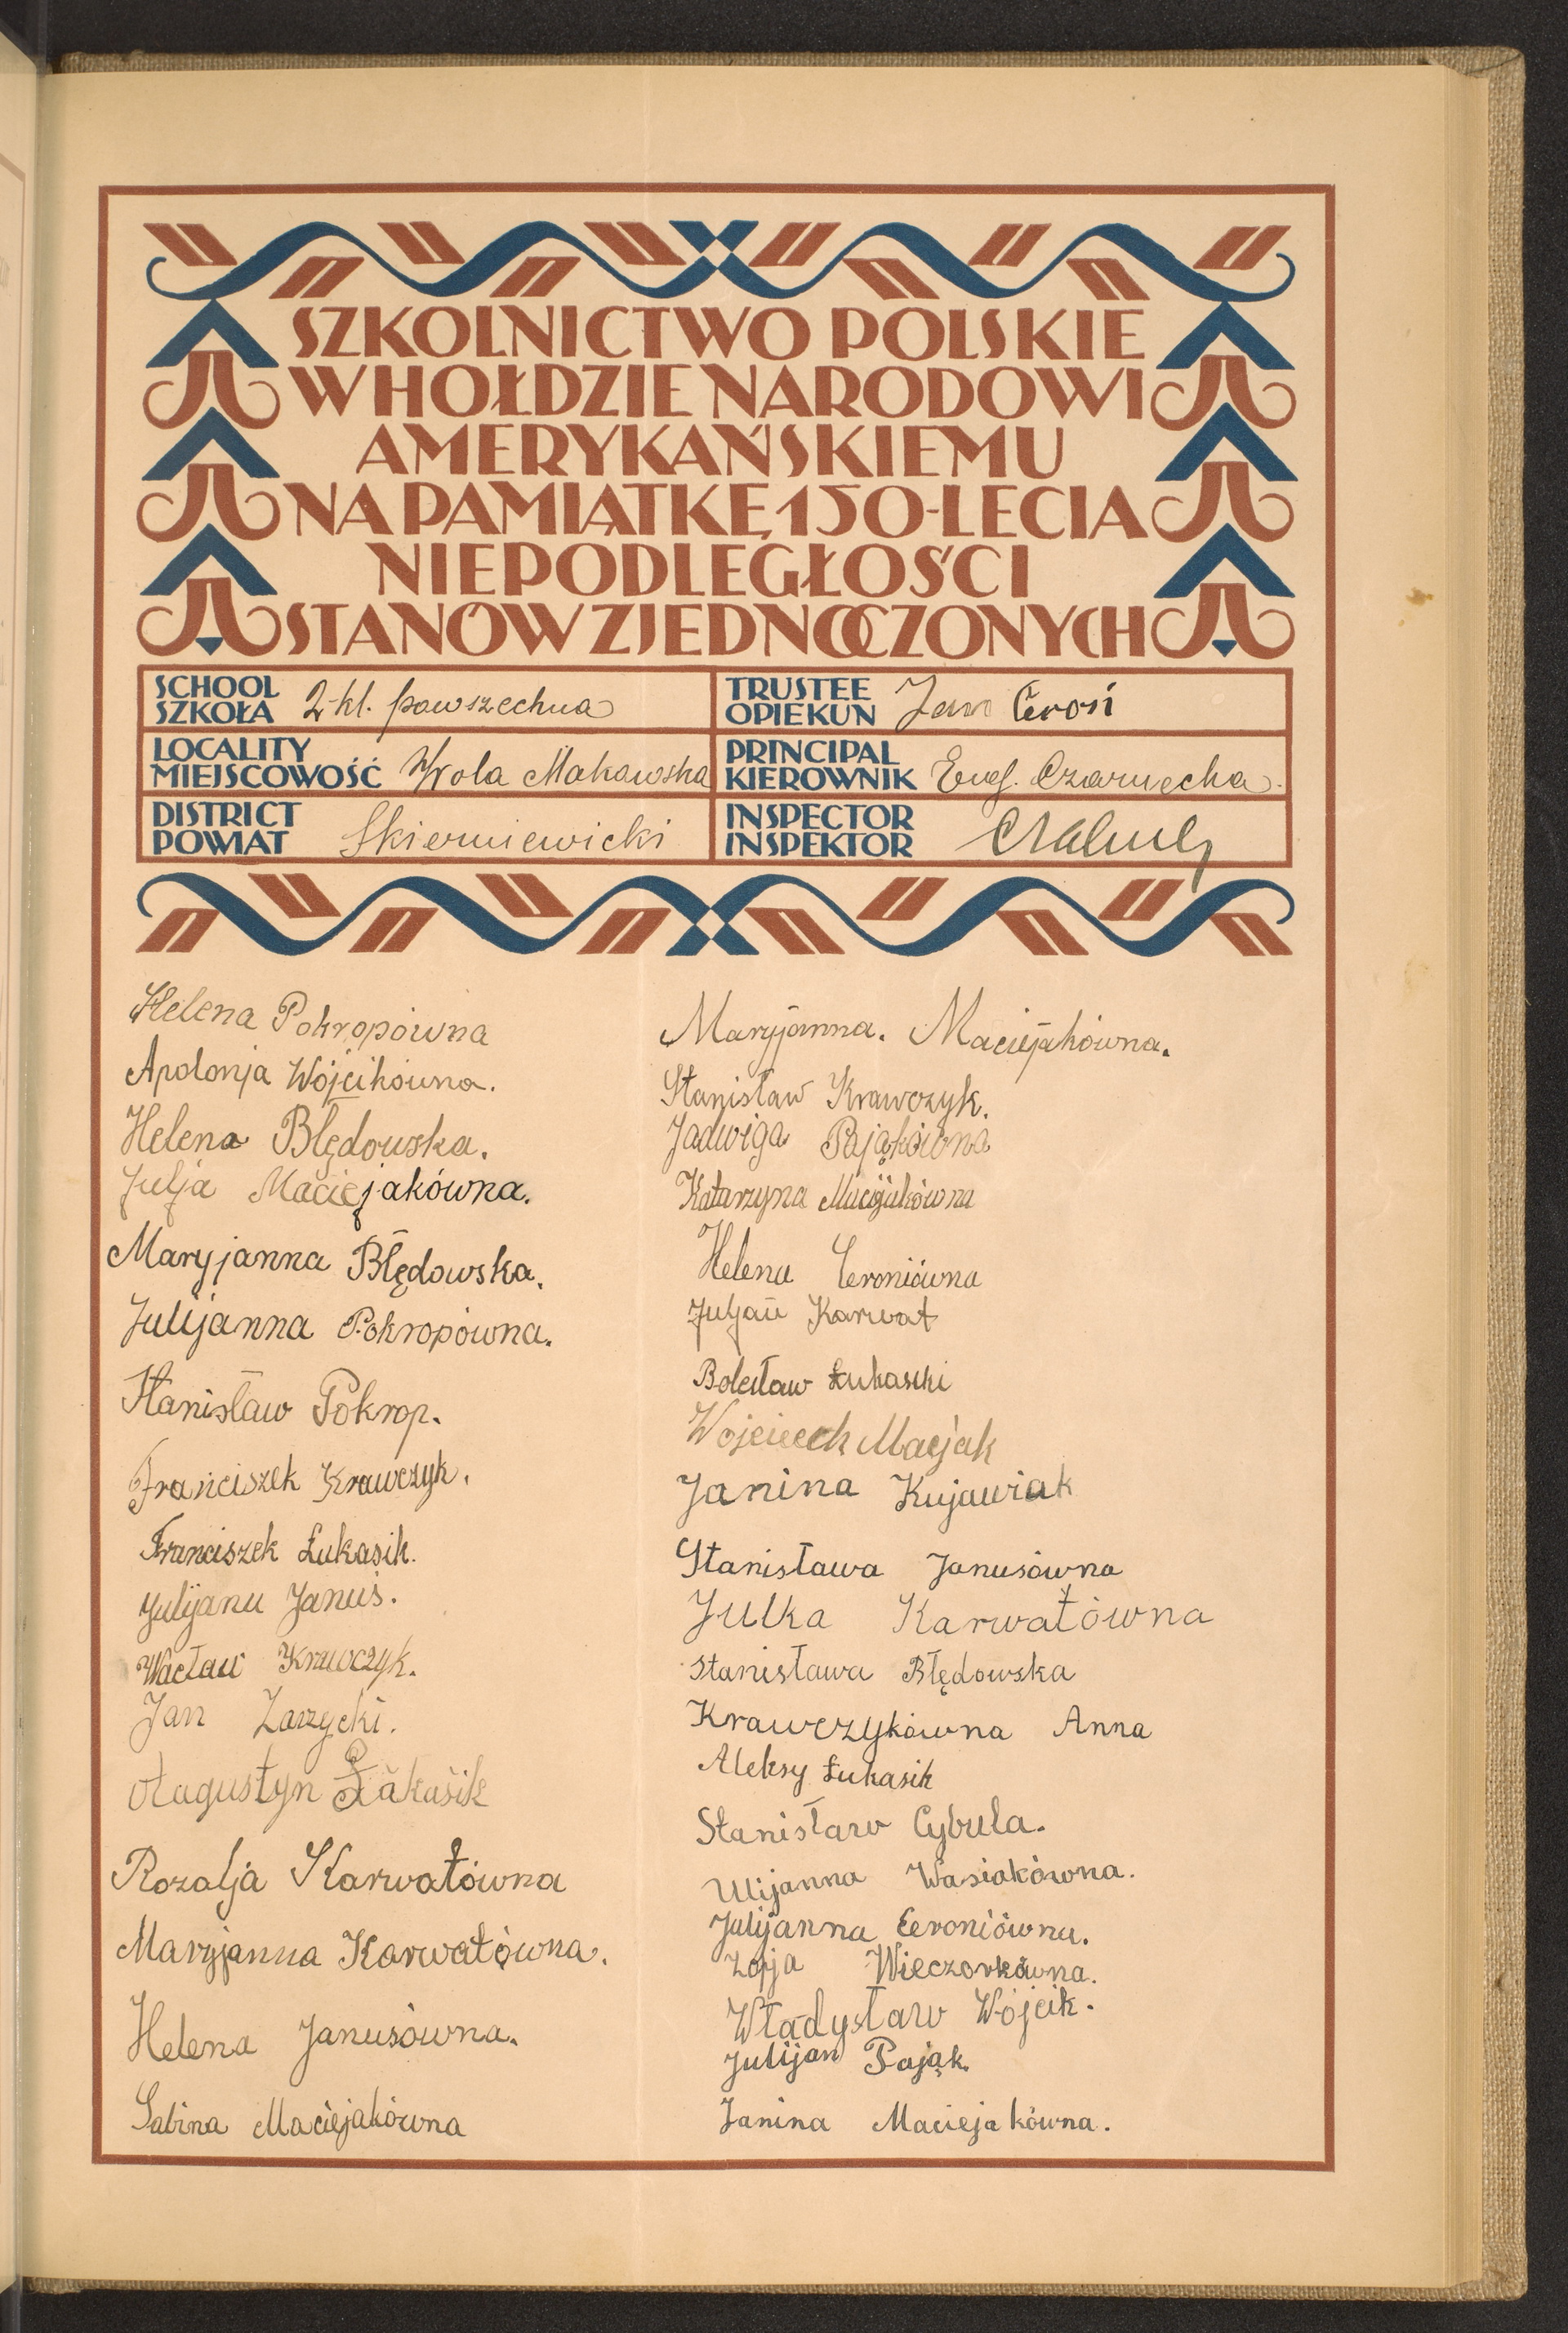 SZKOLNICTWO POLSKIE
W HOŁDZIE NARODOWI
AMERYKAŃSKIEMU
NA PAMIĄTKĘ 150-LECIA
NIEPODLEGŁOŚCI
STANÓW ZJEDNOCZONYCH
SCHOOL
SZKOŁA 2-kl. powszechna
TRUSTEE
OPIEKUN Jan Ceroń
LOCALITY
MIEJSCOWOŚĆ Wola Makowska
PRINCIPAL
KIEROWNIK Eug. Czarnecka.
DISTRICT
POWIAT Skierniewicki
INSPECTOR
INSPEKTOR
Helena Pokropówna
Apolonja Wójcikówna.
Helena Błędowska.
Julja Maciejakówna.
Maryjanna Błędowska.
Julijanna Pokropówna.
Stanisław Pokrop.
Franciszek Krawczyk.
Franciszek Łukasik.
Julijanu Januś.
Wacław Krawczyk.
Jan Zarzycki.
Augustyn Łukasik
Rozalja Karwatówna
Maryjanna Karwatówna.
Helena Janusówna.
Sabina Maciejakówna
Maryjanna. Maciejakówna.
Stanisław Krawczyk.
Jadwiga Pająkówna
Katarzyna Maciejakówna
Helena Ceroniówna
Juljan Karwat
Bolesław Łukasiki
Wojciech Macjak
Janina Kujawiak
Stanisława Janusówna
Julka Karwatówna
Stanisława Błędowska
Krawczykówna Anna
Aleksy Łukasik
Stanisław Cybula.
Ulijanna Wasiakówna.
Julijanna Ceroniówna.
Zofja Wieczorkówna.
Władysław Wójcik.
Julijan Pająk.
Janina Maciejakówna.